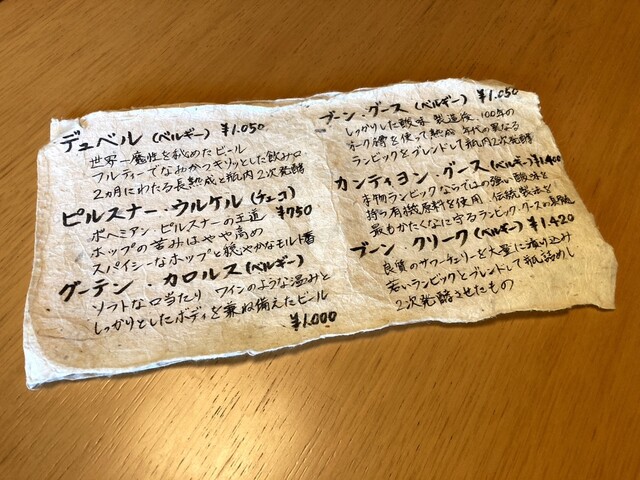 デュベル (ベルギー) ¥1.050
世界一魔性を秘めたビール
フルーティーでなおかつキリッとした飲み口
2ヵ月にわたる長熟成と瓶内2次発酵
ピルスナー・ウルケル (チェコ) ¥750
ボヘミアン ピルスナーの王道
ホップの苦みはやや高め
スパイシーなホップと穏やかなモルト香
グーデン・カロルス (ベルギー)
ソフトな口当たり ワインのような温みと
しっかりとしたボディを兼ね備えたビール
¥1.000
ブーン・グース (ベルギー) ¥1.050
しっかりした酸味 製造後、100年の
オーク樽を使って熟成 年代の異なる
ランビックをブレンドして瓶内2次発酵
カンティヨン・グース (ベルギー) ¥1,400
本物ランビックならではの強い酸味を
持つ有機原料を使用 伝統製法を
最もかたくなに守るランビック・グースの
ブーン・クリーク (ベルギー) ¥1.420
良質のサワーチェリーを大量に漬り込み
若いランビックとブレンドして瓶詰めし
2次発酵させたもの